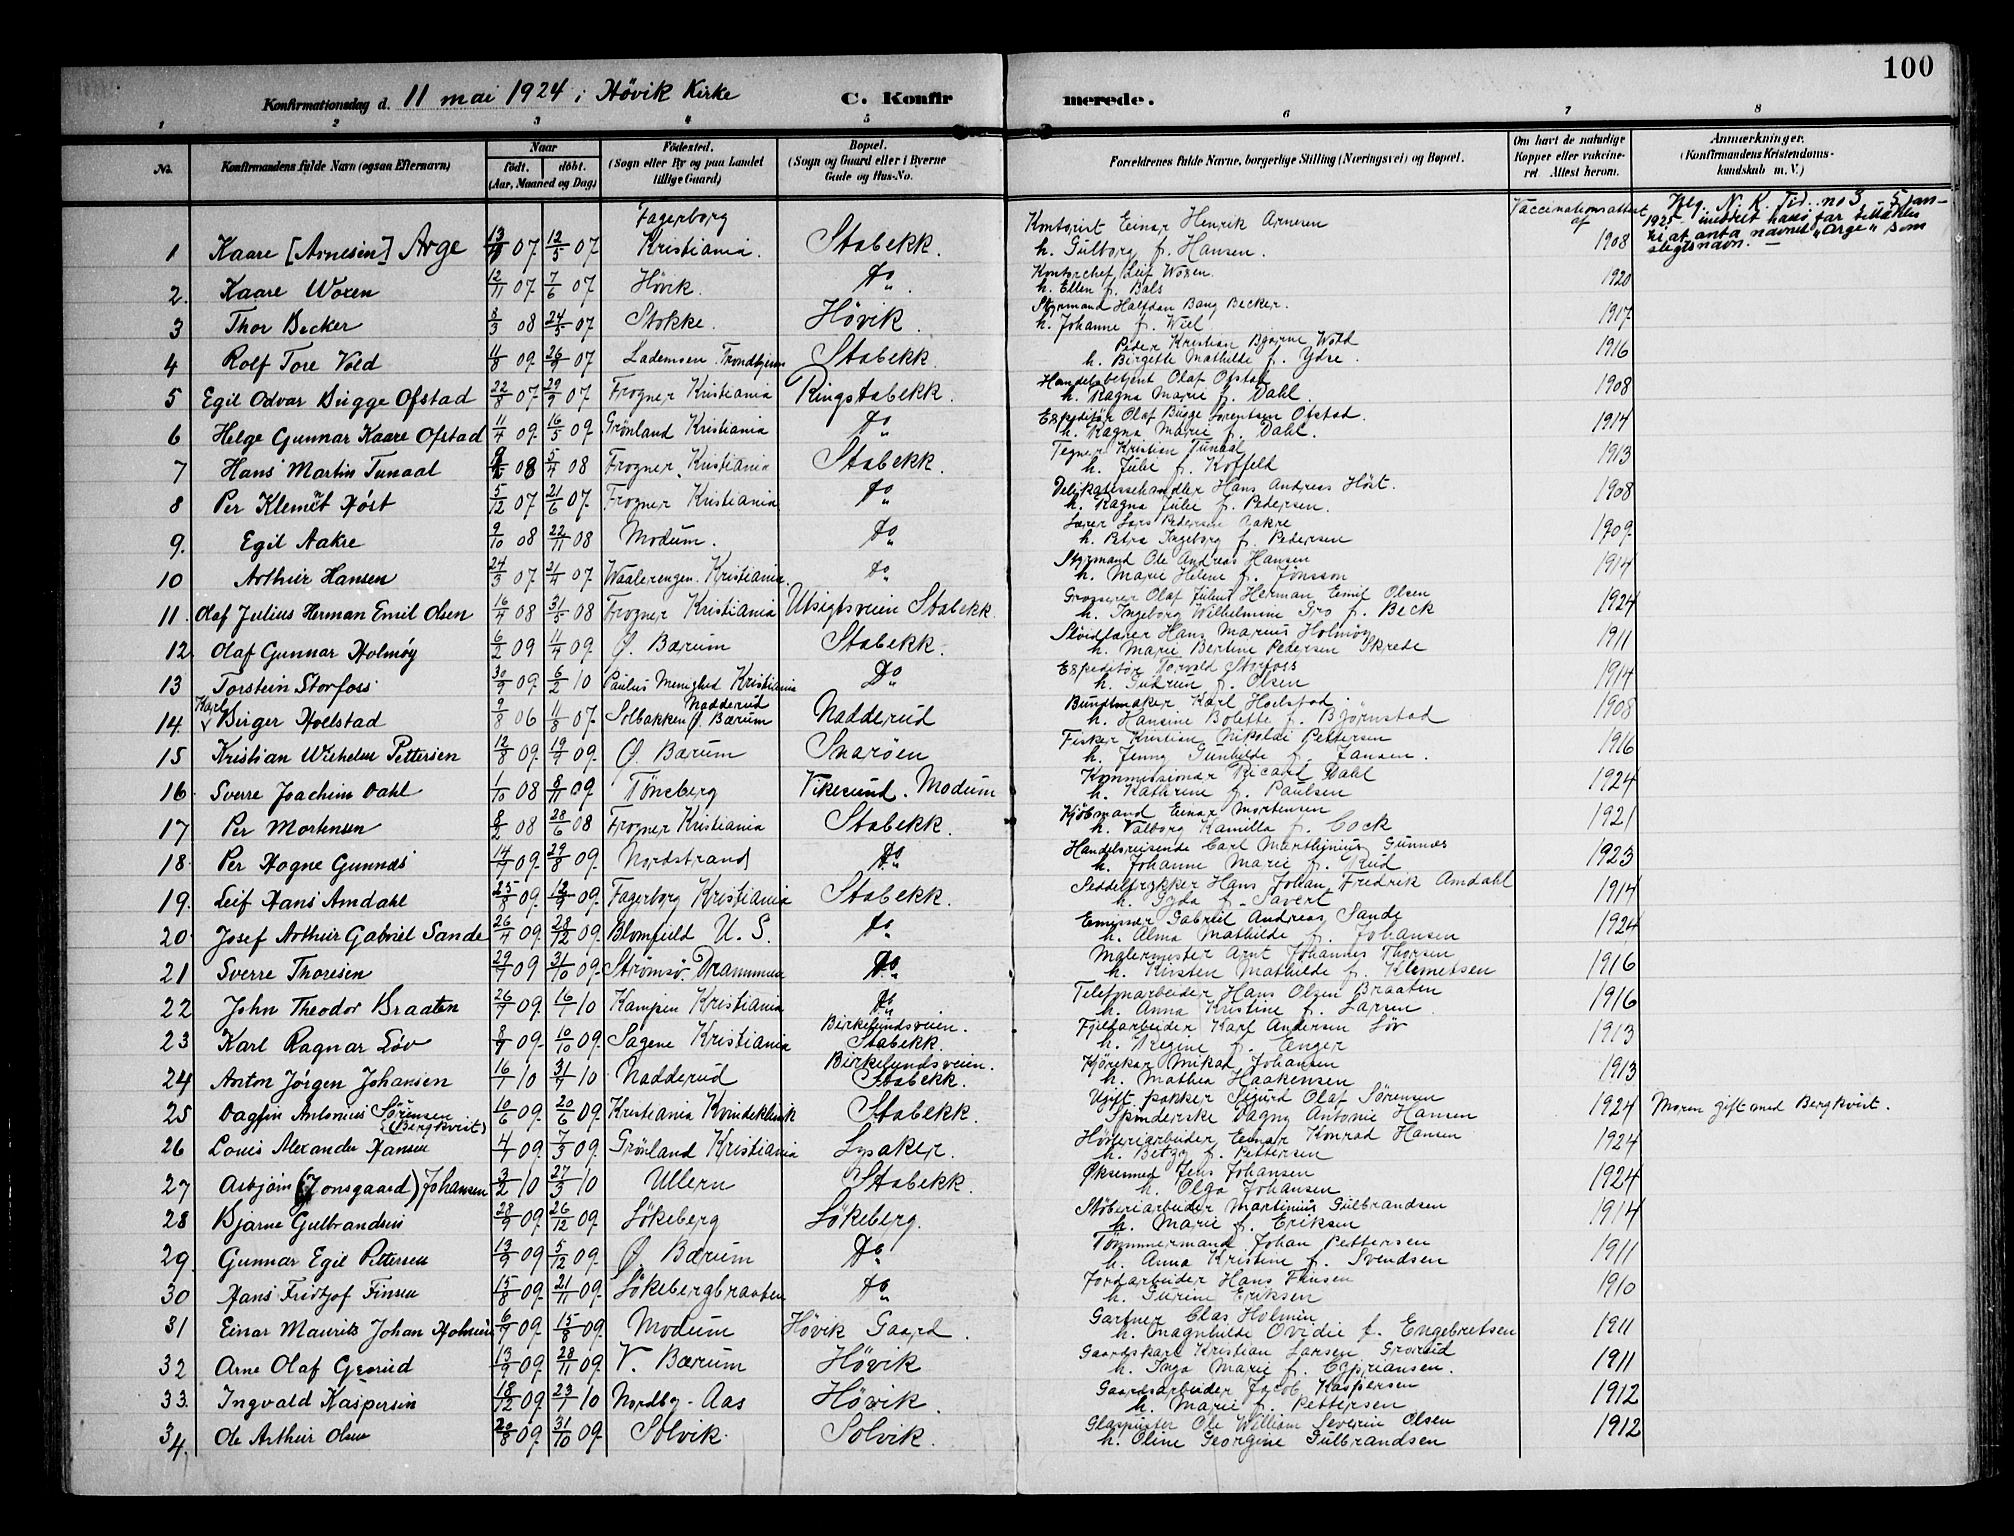 100
Konfirmationsdag d. 11 mai 1924 i Høvik Kirke C. Konfirmerede.
1 2 3 4 5 6 7 8
No. Konfirmandens fulde Navn (ogsaa Efternavn) Naar født. døbt. (Aar, Maaned og Dag) Fødested. (Sogn eller By og paa Landet tillige Gaard) Bopæl. (Sogn og Gaard eller i Byerne Gade og Hus-No. Forældrenes fulde Navne, borgerlige Stilling (Næringsvei) og Bopæl. Om havt de naturlige Kopper eller vakcineret. Attest herom. Anmærkninger. (Konfirmandens Kristendomskundskab m. V.)
1 Kaare [Arnesen] Arge 07 12/5 07 Fagerborg Kristiania. Stabekk. Kontorist Einar Henrik Arnesen h. Gulborg f. Hansen. Vaccinationsattest af 1908 N. K. Tid. no 3 - 5 jan - 1925 - hans far at anta navnet "Arge" som slegtsnavn. -
2. Kaare Woxen 12/11 07 7/6 07 Høvik. Do Kontorchef Leif Woxen. h. Ellen f. Bals 1920
3 Thor Becker 8/3 08 24/5 07 Stokke. Høvik. Styrmand Halfdan Bang Becker. h. Johanne f. Wiel 1917
4 Rolf Tore Vold 09 07 Trondhjem Stabekk. Peder Kristian Bjarne Wold h. Birgette Mathilde f. Ydse. 1916
5 Egil Odvar Bugge Ofstad 22/8 07 29/9 07 Frogner Kristiania Ringstabekk. Handelsbetjent Olaf Ofstad h. Ragna Marie f. Dahl. 1908
6 Helge Gunnar Kaare Ofstad 11/4 09 16/5 09 Grønland Kristiania Do Expeditør Olaf Bugge Sørentsen Ofstad. h. Ragna Marie f. Dahl. 1914
7 Hans Martin Tunaal 08 5/4 08 Frogner. Kristiania Stabekk. Tegner Kristian Tunaal h. Julie f. Koffeld 1913
8 Per Klemet Høst 5/12 07 21/6 07 Frogner Kristiania Do Delikatessehandler Hans Andreas Høst. h. Ragna Julie f. Pedersen. 1908
9. Egil Aakre 9/10 08 22/11 08 Modum. Do Lærer Lars Pedersen Aakre h. Petra Ingeborg f. Pedersen 1909.
10 Arthur Hansen 24/3 07 21/4 07 Waalerengen. Kristiania. Do Styrmand Ole Andreas Hansen h. Marie Helene f. Jonsson 1914
11. Olaf Julius Herman Emil Olsen 16/4 08 31/5 08 Frogner Kristiania Utsigtsveien Stabekk. Grosserer Olaf Julius Herman Emil Olsen h. Ingeborg Wilhelmine Gro f. Beck 1924
12. Olaf Gunnar Holmøy 6/2 09 11/4 09. Ø. Bærum Stabekk. Sløidlærer Hans Marius Holmøy h. Marie Bertine Pedersen Skrede 1911
13 Torstein Storfoss 30/9 09 6/2 10 Paulus Menighed Kristiania Do Expeditør Torvald Storfoss h. Gudrun f. Olsen 1914
14. Karl Birger Hoelstad 9/8 06 11/8 07. Solbakken Nadderud Ø. Bærum Nadderud Bundtmaker Karl Hoelstad h. Hansine Bolette f. Bjørnstad 1908
15 Kristian Wilhelm Pettersen 12/8 09 19/9 09. Ø. Bærum Snarøen Fisker Kristian Nikolai Pettersen h. Jenny Gunhilde f. Jansen. 1916
16. Sverre Joachim Dahl 1/10 08 8/11 09 Tönsberg Vikesund. Modum Kommissionær Ricard Dahl h. Kathrine f. Paulsen 1924
17 Per Mortensen 8/2 08 28/6 08 Frogner Kristiania Stabekk. Kjøbmand Einar Mortensen h. Valborg Kamilla f. Cock 1921
18. Per Hogne Gunnæs 09. 29/8 09. Nordstrand Do Handelsreisende Carl Marthinius Gunnæs h. Johanne Marie f. Rud 1923
19. Leif Hans Amdahl 09. 09. Fagerborg Kristiania Stabekk. Seddeltrykker Hans Johan Fredrik Amdahl h. Gyda f. 1914
20. Josef Arthur Gabriel Sande 26/4 09. 28/12 09. Blomfield U. S. Do Emissær Gabriel Andreas Sande h. Alma Mathilde f. Johansen 1924
21 Sverre Thoresen 29/7 09 31/10 09. Strømsø. Drammen Do Malermester Arnt Johannes Thorsen h. Kirsten Mathilde f. Klemetsen 1916
22 John Theodor Braaten 26/7 09. 16/7 10 Kampen Kristiania Do Telefonarbeider Hans Olsen Braaten h. Anna Kristine f. Larsen 1916
23 Karl Ragnar Löv 09. 10/10 09. Sagene Kristiania Birkelundsveien. Stabekk. Karl Andersen Löv h. Regine f. Enger 1913
24 Anton Jørgen Johansen 16/1 10 31/7 10 Nadderud Birkelundsveien. Stabekk. Kjørekar Mikal Johansen h. Mathea Haakensen 1913
25 Dagfin Antonius Sørensen (Bergkvist) 10/6 09. 20/6 09. Kristiania Kvindeklinik Stabekk. Ugift pakker Sigurd Olaf Sørensen Spinderske Dagny Antonie Hansen 1924 Moren gift med Bergkvist.
26 Louis Alexander Hansen 4/1 09. 7/3 09. Grønland Kristiania Lysaker. Høvleriarbeider Einar Konrad Hansen h. Betzy f. Pettersen 1924
27 Asbjørn (Jonsgaard) Johansen 3/2 10 27/3 10 Ullern Stabekk. Jens Johansen h. Olga Johansen 1924
28 Bjarne Gulbrandsen 28/9 09. 26/12 09. Løkeberg Løkeberg. Støberiarbeider Martinius Gulbrandsen h. Marie f. Eriksen 1914
29. Gunnar Egil Pettersen 13/9 09 5/12 09. Ø. Bærum Do Tømmermand Johan Pettersen h. Anna Kristine f. Svendsen 1911
30 Hans Fridtjof Finsen 15/8 09. 21/11 09. Løkebergbraaten Do Jordarbeider Hans Finsen h. Gurine Eriksen 1910
31 Einar Maurits Johan Holmin 6/7 09. 15/8 09. Modum Høvik Gaard. Gartner Clas Holmin h. Magnhilde Ovidie f. Engebretsen 1911
32 Arne Olaf Grorud 13/9 09. 28/11 09. V. Bærum Høvik Gaardskarl Kristian Larsen Grorud h. Inga Marie f. Cyprianssen. 1911
33. Ingvald Kaspersen 18/12 09. 23/1 10 Nordby - Aas Høvik. Gaardsarbeider Jacob Kaspersen h. Marie f. Pettersen 1912
34. Ole Arthur Olsen 20/8 09. 31/10 09. Solvik. Solvik. Glaspuster Ole William Severin Olsen h. Oline Georgine Gulbrandsen 1912